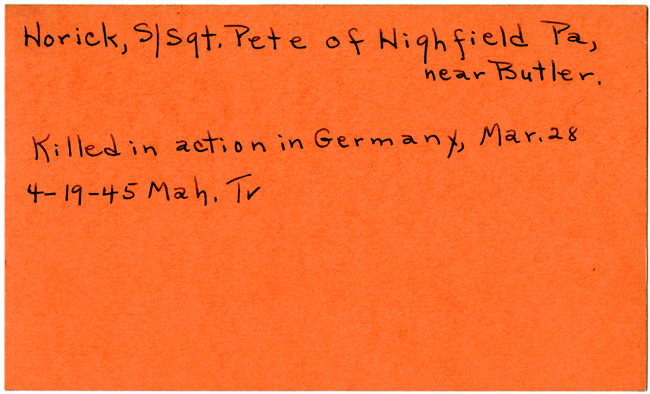 Horick, S/Sgt. Pete of Highfield Pa,
near Butler.
Killed in action in Germany, Mar. 28
4-19-45 Mah. Tr